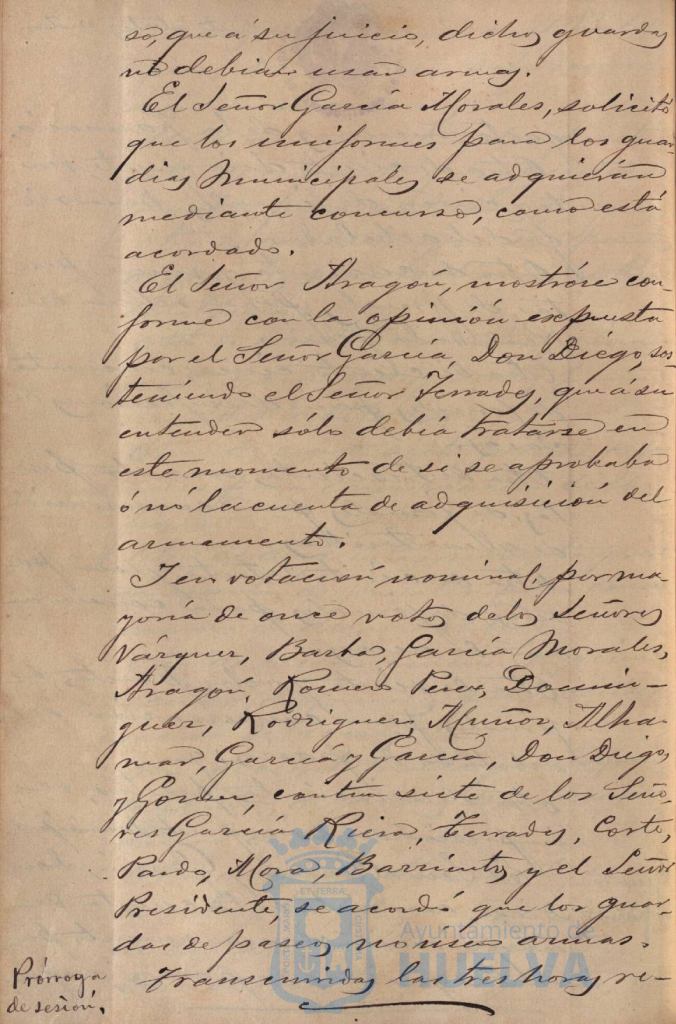 so, que á su juicio, dichos guardas
no debian usar armas.
El Señor García Morales, solicitó
que los uniformes para los guar-
dias Municipales se adquieran
mediante concurso, como está
acordado.
El Señor Aragón, mostróse con-
forme con la opinión expuesta
por el Señor García, Don Diego, sos-
teniendo el Señor Terrades, que á su
entender sólo debia tratarse en
este momento de si se aprobaba
ó nó la cuenta de adquisición del
armamento.
I en votación nominal, por ma-
yoría de once votos de los Señores
Várquez, Barba, García Morales,
Aragón, Romero Perez, Domin-
guez, Rodriguez, Muñoz, Alha-
mar, García y García, Don Diego,
y Gómez, contra siete de los Seño-
res García Riera, Terrades, Corte,
Pardo, Mora, Barrientos y el Señor
Presidente, se acordó que los guar-
das de paseos no usen armas.
Prórroga
de sesión.
Transcurridas las tres horas re-
Ayuntamiento de
HUELVA